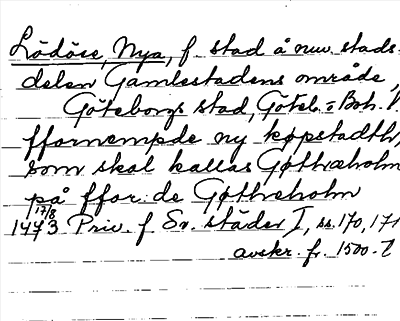 Lödöse, Nya, f. stad å nuv. stads-
delen Gamlestadens område,
Göteborgs stad, Göteb. o. Boh. l.
ffornempde ny køpstadth,
som skal kallas Gøthæholm
på ffor:de Gøthæholm
17/8
1473 Priv. f. Sv. städer I, ss. 170, 171
avskr. fr. 1500-t